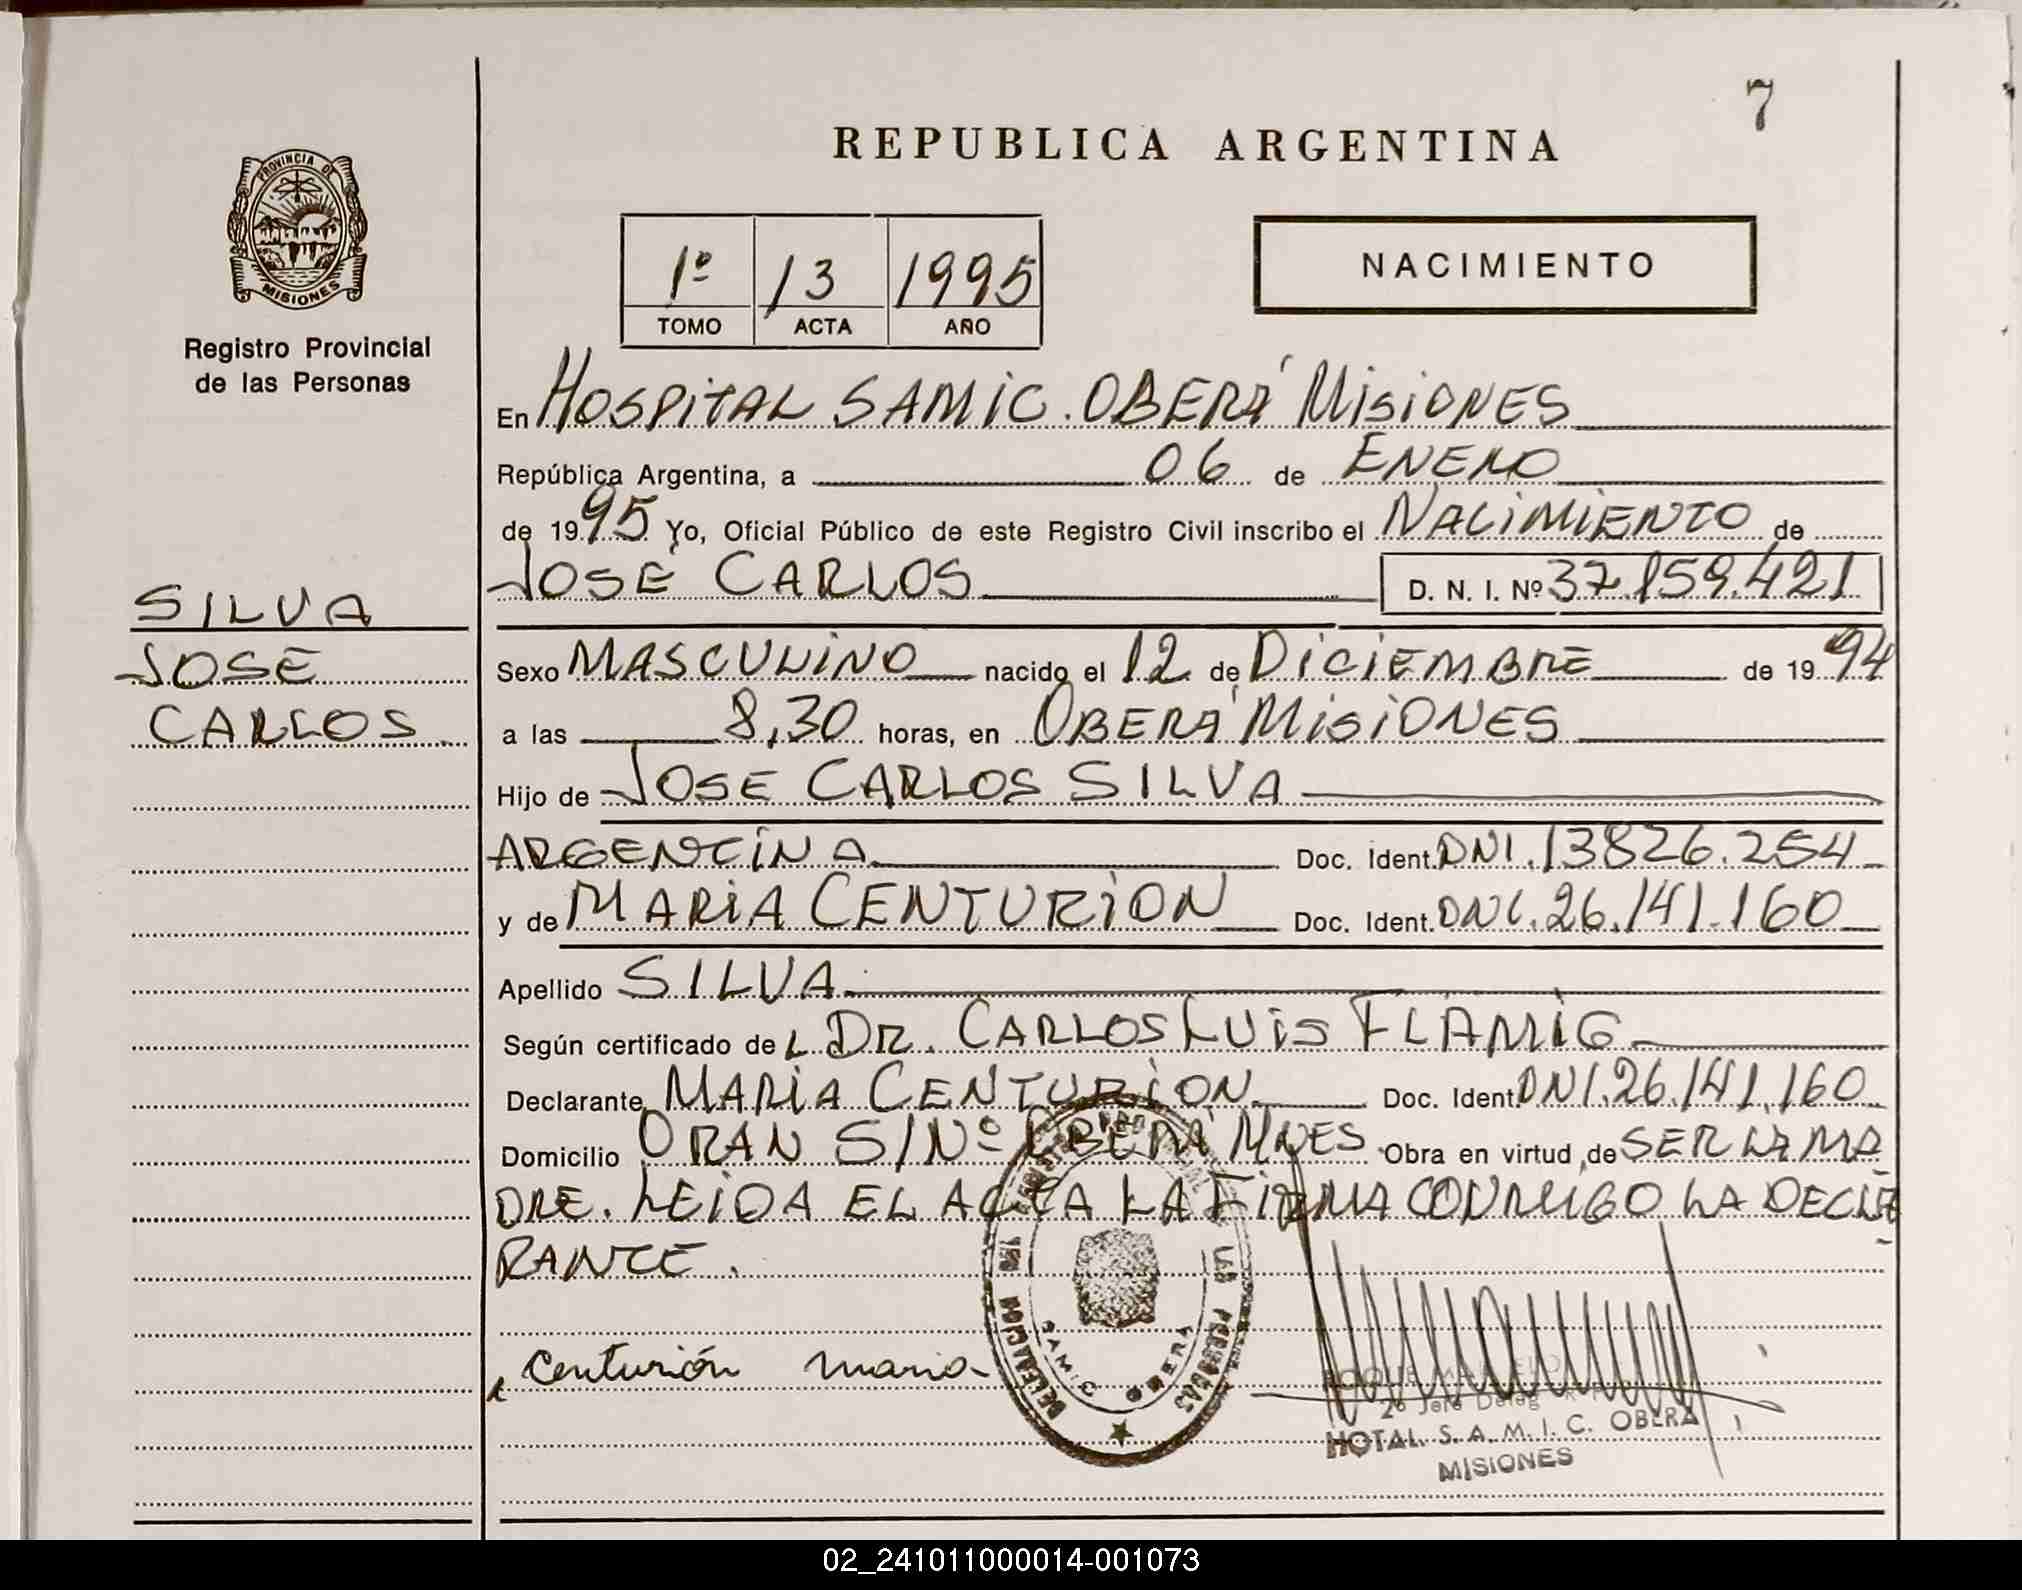 7
REPUBLICA ARGENTINA
PROVINCIA DE
MISIONES
Registro Provincial
de las Personas
1º 13 1995
TOMO ACTA AÑO
NACIMIENTO
En HOSPITAL SAMIC. OBERÁ MISIONES
República Argentina, a 06 de ENERO
de 1995 Yo, Oficial Público de este Registro Civil inscribo el NACIMIENTO de
JOSE CARLOS D. N. I. Nº 37.159.421
SILVA
JOSE
CARLOS
Sexo MASCULINO nacido el 12 de DICIEMBRE de 1994
a las 8,30 horas, en OBERÁ MISIONES
Hijo de JOSE CARLOS SILVA
ARGENTINA Doc. Ident. DNI. 13826.254
y de MARIA CENTURION Doc. Ident. DNI. 26.141.160
Apellido SILVA
Según certificado de L DR. CARLOS LUIS FLAMIG
Declarante MARIA CENTURION Doc. Ident. DNI. 26.141.160
Domicilio ORAN S/Nº OBERÁ MNES Obra en virtud de SER LA MA
DRE. LEIDA EL ACTA LA FIRMA CONMIGO LA DECLA
RANTE.
Centurión maria
DELEGACION LAS PERSONAS
SAMIC OBERA
2º Jefe Deleg
HOTAL. S. A. M. I. C. OBERA
MISIONES
02_241011000014-001073